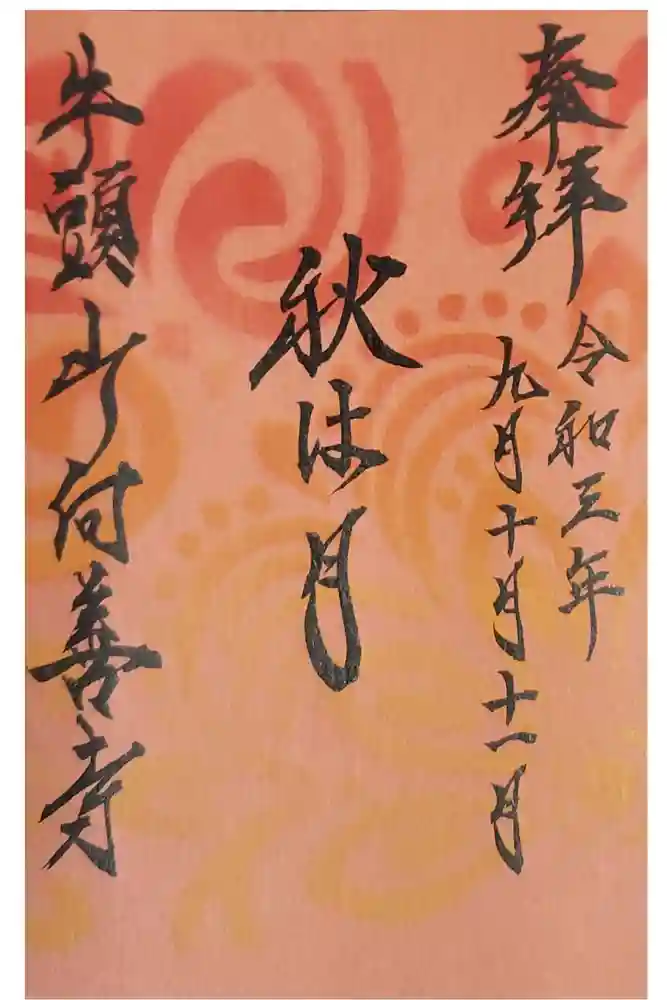 奉拝
令和三年
九月十月十一月
秋は月
牛頭山付善寺